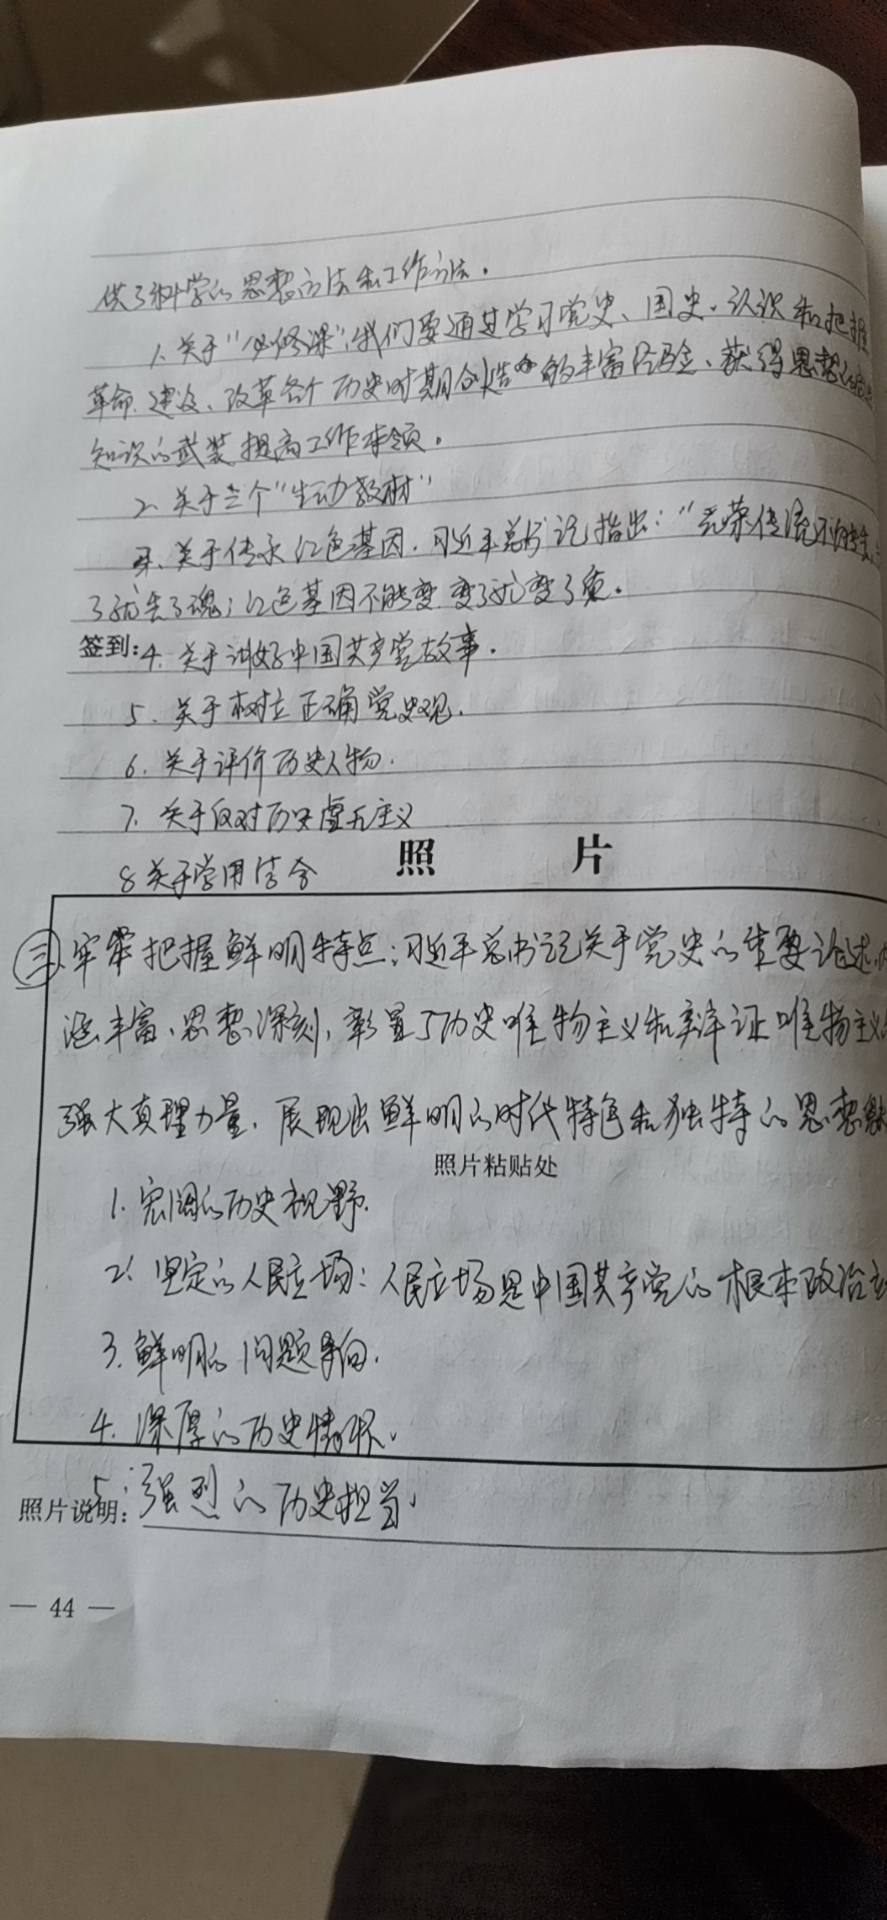 供了科学的思想方法和工作方法。
1、关于"必修课":我们要通过学习党史、国史、认识和把握
革命、建设、改革各个历史时期创造的丰富经验、获得思想
知识的武装提高工作本领。
2、关于三个"生动教材"
3、关于传承红色基因.习近平总书记指出:"光荣传统不能丢,
了就丢了魂;红色基因不能变 变了就变了质。
签到:4. 关于讲好中国共产党故事.
5、关于树立正确党史观.
6、关于评价历史人物.
7、关于反对历史虚无主义
8 关于学用结合
照 片
三.牢牢把握鲜明特点:习近平总书记关于党史的重要论述.内
涵丰富、思想深刻,彰显了历史唯物主义和辩证唯物主义的
强大真理力量.展现出鲜明的时代特色和独特的思想魅
照片粘贴处
1.宏阔的历史视野.
2、坚定的人民立场:人民立场是中国共产党的根本政治立
3.鲜明的问题导向.
4.深厚的历史情怀.
5、强烈的历史担当.
照片说明:
— 44 —